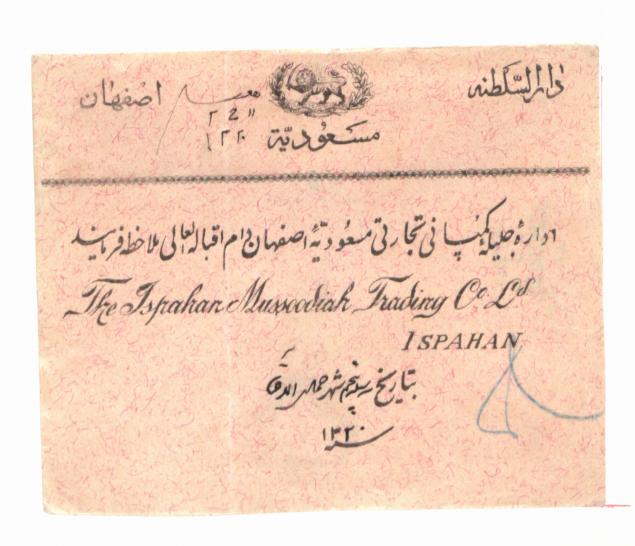 دارالسّلطنه اصفهان
مسعودیّهٔ
ادارهٔ جلیلهٔ کمپانی تجارتی مسعودیّهٔ اصفهان دام اقباله العالی ملاحظه فرمایند
The Ispahan Mussoodiah Trading Co Ld
ISPAHAN
بتاریخ پنجم شهر
سنه ۱۳۲۰